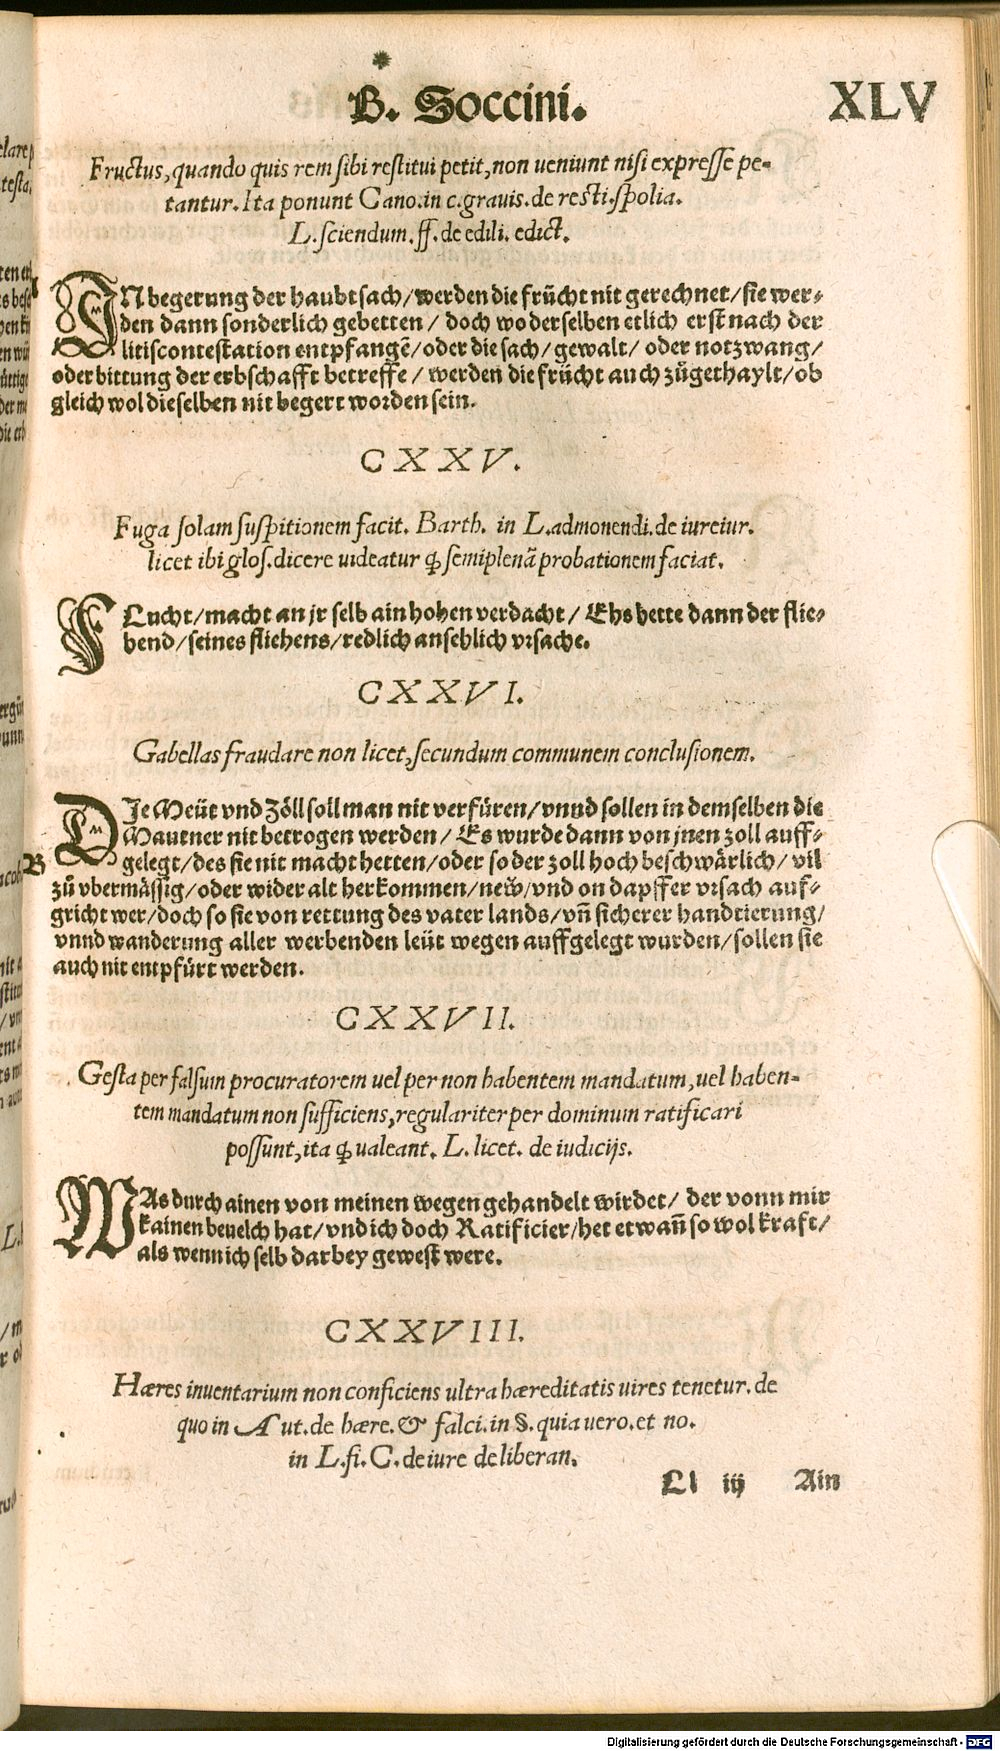 B. Soccini.
XLV
Fructus, quando quis rem sibi restitui petit, non ueniunt nisi expresse pe-
tantur. Ita ponunt Cano. in c. grauis. de resti. spolia.
L. sciendum. ff. de edili. edict.
IN begerung der haubtsach/ werden die frücht nit gerechnet/ sie wer-
den dann sonderlich gebetten/ doch wo derselben etlich erst nach der
litiscontestation entpfangẽ/ oder die sach/ gewalt/ oder notzwang/
oder bittung der erbschafft betreffe/ werden die frücht auch zůgethaylt/ ob
gleich wol dieselben nit begert worden sein.
CXXV.
Fuga solam suspitionem facit. Barth. in L. admonendi. de iureiur.
licet ibi glos. dicere uideatur ꝙ semiplenã probationem faciat.
FLucht/ macht an jr selb ain hohen verdacht/ Ehs hette dann der flie-
hend/ seines fliehens/ redlich ansehlich vrsache.
CXXVI.
Gabellas fraudare non licet, secundum communem conclusionem.
DIe Meüt vnd Zöll soll man nit verfüren/ vnnd sollen in demselben die
Mautner nit betrogen werden/ Es wurde dann von jnen zoll auff-
B gelegt/ des sie nit macht hetten/ oder so der zoll hoch beschwärlich/ vil
zů vbermässig/ oder wider alt herkommen/ new/ vnd on dapffer vrsach auf-
gricht wer/ doch so sie von rettung des vater lands/ vñ sicherer handtierung/
vnnd wanderung aller werbenden leüt wegen auffgelegt wurden/ sollen sie
auch nit entpfürt werden.
CXXVII.
Gesta per falsum procuratorem uel per non habentem mandatum, uel haben-
tem mandatum non sufficiens, regulariter per dominum ratificari
possunt, ita ꝙ ualeant. L. licet. de iudicijs.
WAs durch ainen von meinen wegen gehandelt wirdet/ der vonn mir
kainen beuelch hat/ vnd ich doch Ratificier/ het etwañ so wol kraft/
als wenn ich selb darbey gewest were.
CXXVIII.
Hæres inuentarium non conficiens ultra hæreditatis uires tenetur. de
quo in Aut. de hære. & falci. in §. quia uero. et no.
in L. fi. C. de iure deliberan.
Ll iij Ain
Digitalisierung gefördert durch die Deutsche Forschungsgemeinschaft - DFG